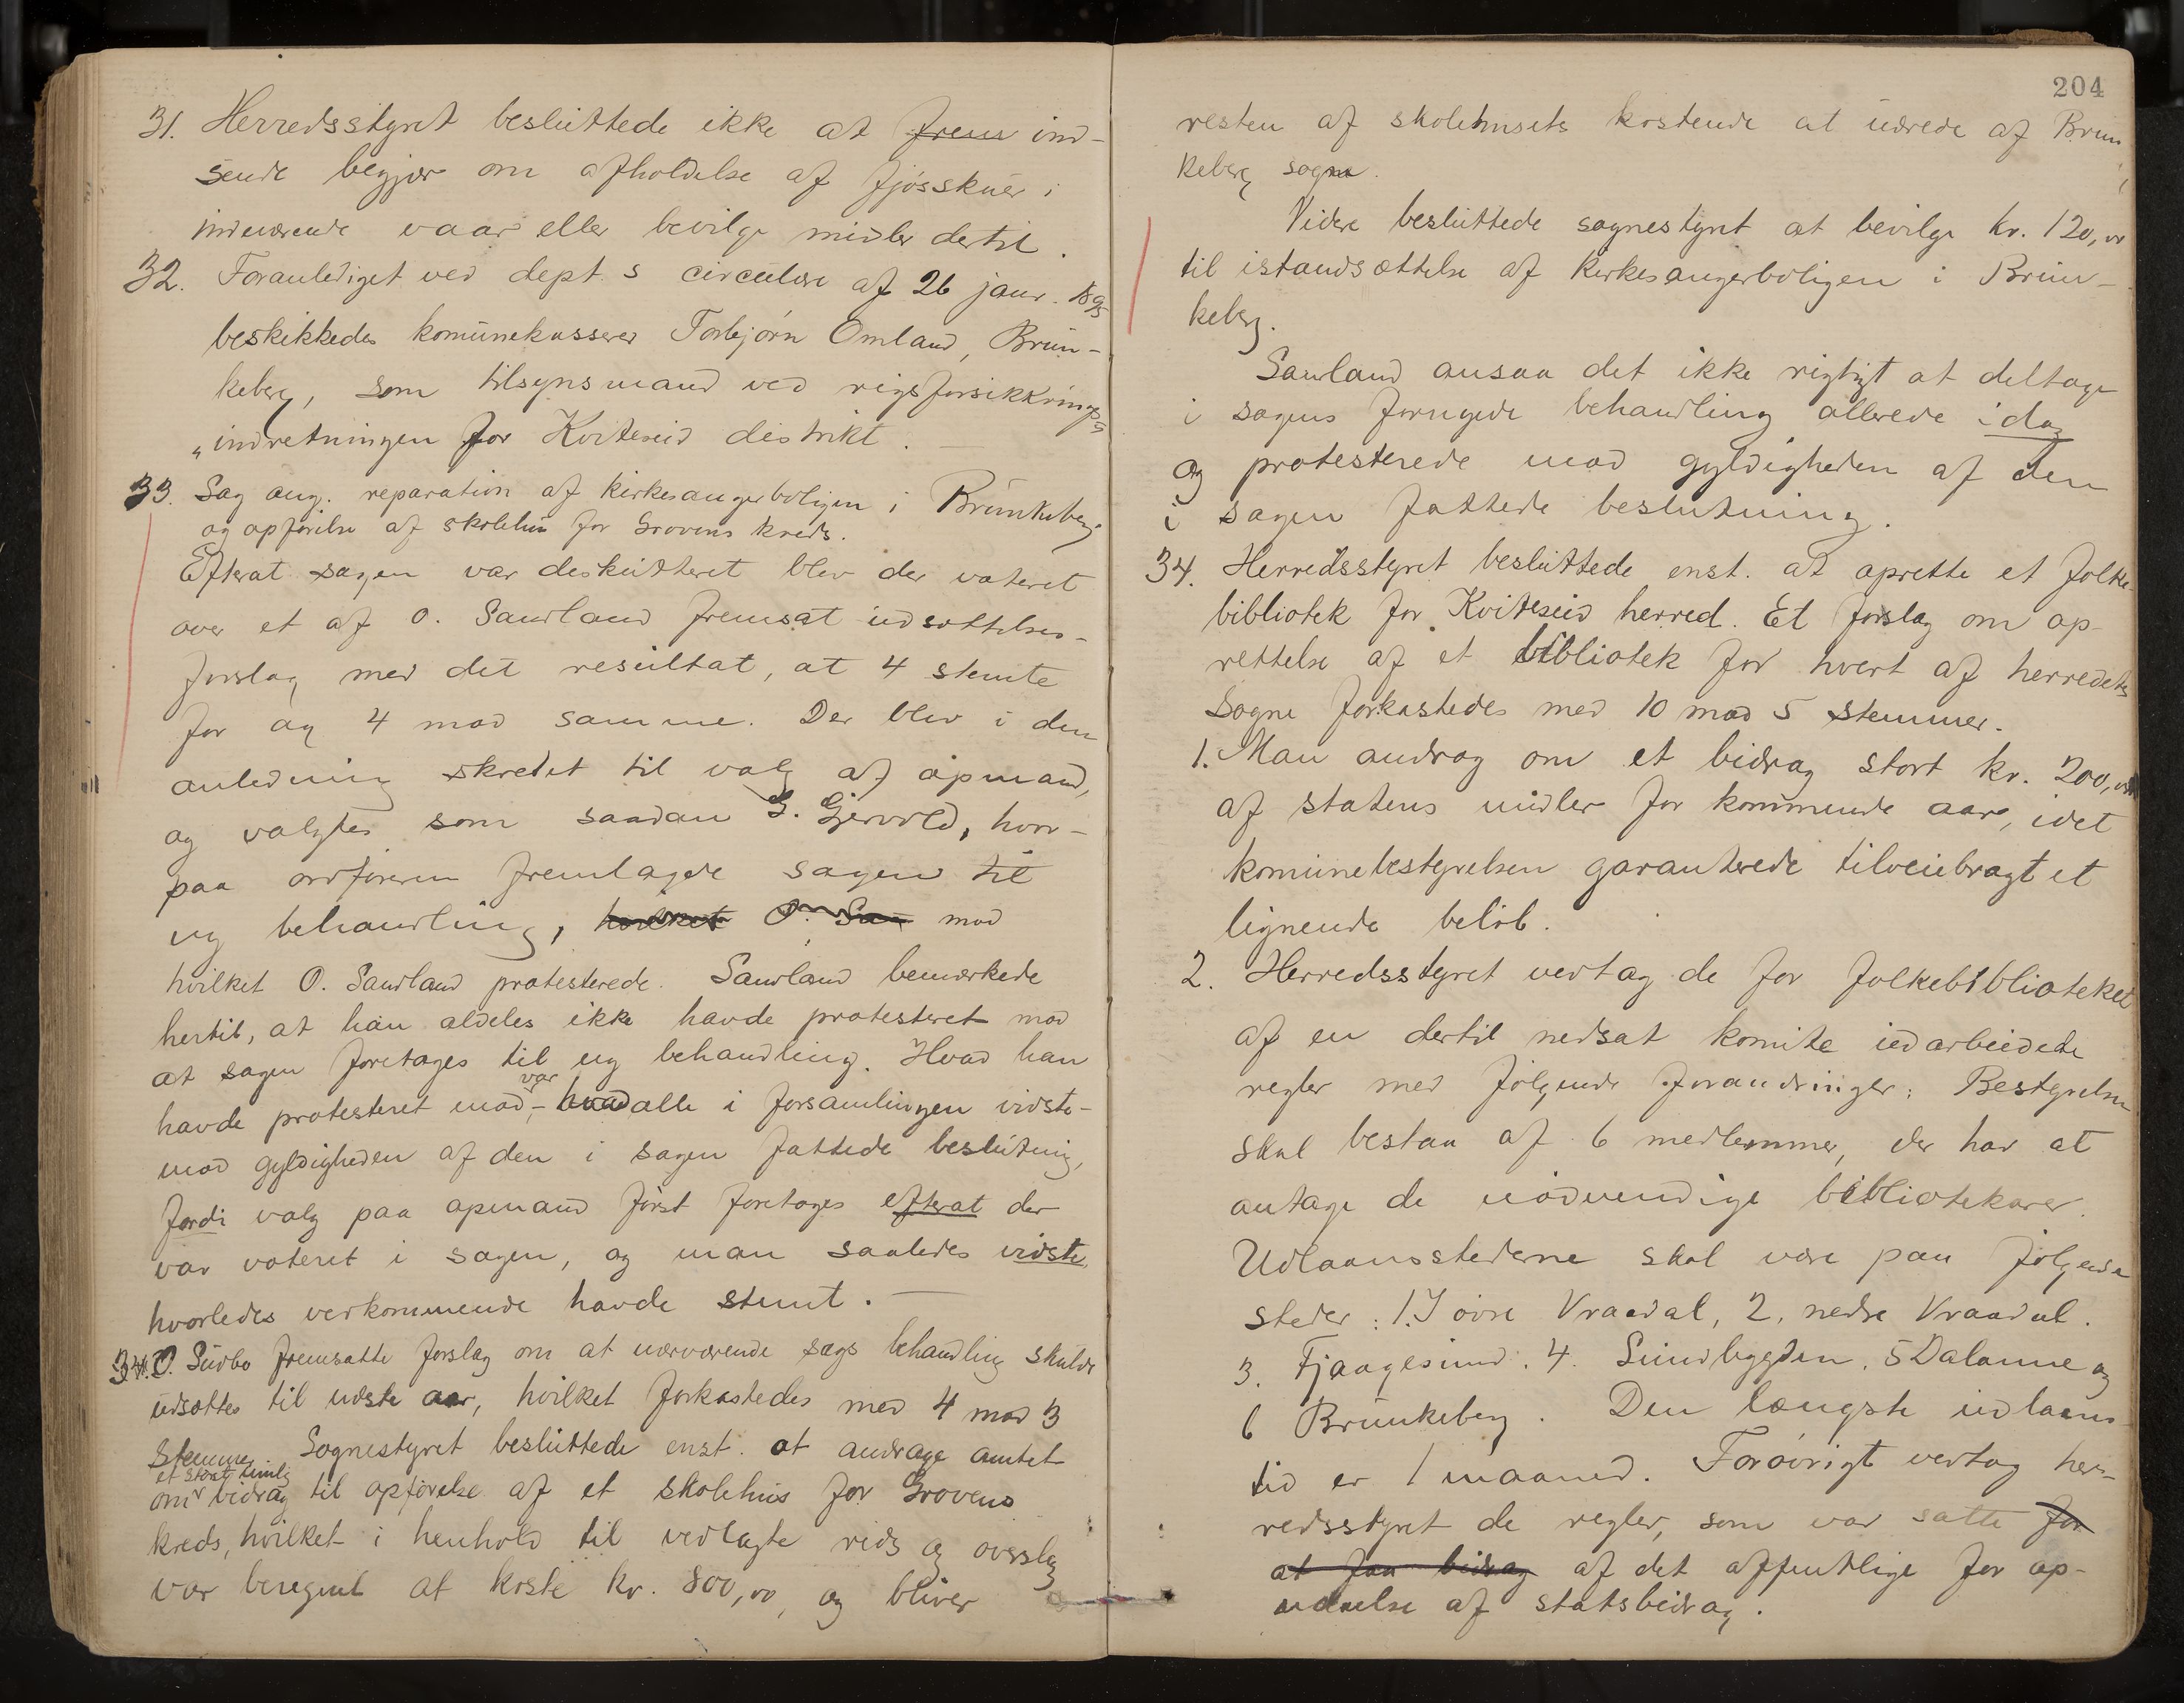 31. Herredsstyret besluttede ikke at frem ind-
sende begjær om afholdelse af fjøsskuer i
indeværende vaar eller bevilge midler dertil.
32. Foranlediget ved dept s circulære af 26 janr. 1895
beskikkedes komunekasserer Torbjørn Omland, Brun-
keberg, som tilsynsmand ved rigsforsikkrings-
"indretningen for Kviteseid distrikt.
33. Sag ang. reparation af kirkesangerboligen i Brunkeberg
og opførelse af skolehus for Grovens kreds.
Efterat sagen var deskutteret blev der voteret
over et af O. Saurland fremsat udsættelses-
forslag med det resultat, at 4 stemte
for og 4 mod samme. Der blev i den
anledning skredet til valg af opmand,
og valgtes som saadan G. Gjervold, hvor-
paa ordføreren fremlagde sagen til
ny behandling, hvilket O. Sau mod
hvilket O. Saurland protesterede. Saurland bemærkede
hertil, at han aldeles ikke havde protesteret mod
at sagen foretages til ny behandling. Hvad han
havde protesteret mod, var – hvad alle i forsamlingen vidste –
mod gyldigheden af den i sagen fattede beslutning,
fordi valg paa opmand først foretages efterat der
var voteret i sagen, og man saaledes vidste,
hvorledes vedkommende havde stemt. —
34. O. Sudbø fremsatte forslag om at nærværende sags behandling skulde
udsættes til næste aar, hvilket forkastedes med 4 mod 3
stemmer. Sognestyret besluttede enst. at andrage amtet
om et stort bidrag til opførelse af et skolehus for Grovens
kreds, hvilket i henhold til vedlagte rids og overslag
var beregnet at koste kr. 800,00, og bliver
204
resten af skolehusets kostende at udrede af Brun
keberg sogn.
Videre besluttede sognestyret at bevilge kr. 120,00
til istandsættelse af kirkesangerboligen i Brun-
keberg.
Saurland ansaa det ikke rigtigt at deltage
i sagens fornyede behandling allerede idag
og protesterede mod gyldigheden af den
i sagen fattede beslutning.
34. Herredsstyret besluttede enst. at oprette et folke-
bibliotek for Kviteseid herred. Et forslag om op-
rettelse af et bibliotek for hvert af herredets
Sogne forkastedes med 10 mod 5 stemmer.
1. Man androg om et bidrag stort kr. 200,00
af statens midler for kommende aar, idet
komunebestyrelsen garanterede tilveiebragt et
lignende beløb.
2. Herredsstyret vedtog de for folkebiblioteket
af en dertil nedsat komite udarbeidede
regler med følgende forandringer: Bestyrelsen
skal bestaa af 6 medlemmer, der har at
antage de nødvendige bibliotekarer.
Udlaansstederne skal være paa følgende
steder: 1. I øvre Vraadal, 2. nedre Vraadal.
3. Fjaagesund. 4. Sundbygden. 5 Dalanne og
6 Brunkeberg. Den længste udlaans
tid er 1 maaned. Forøvrigt vedtog her-
redsstyret de regler, som var satte for
at faa bidrag af det offentlige for op-
naaelse af statsbidrag.